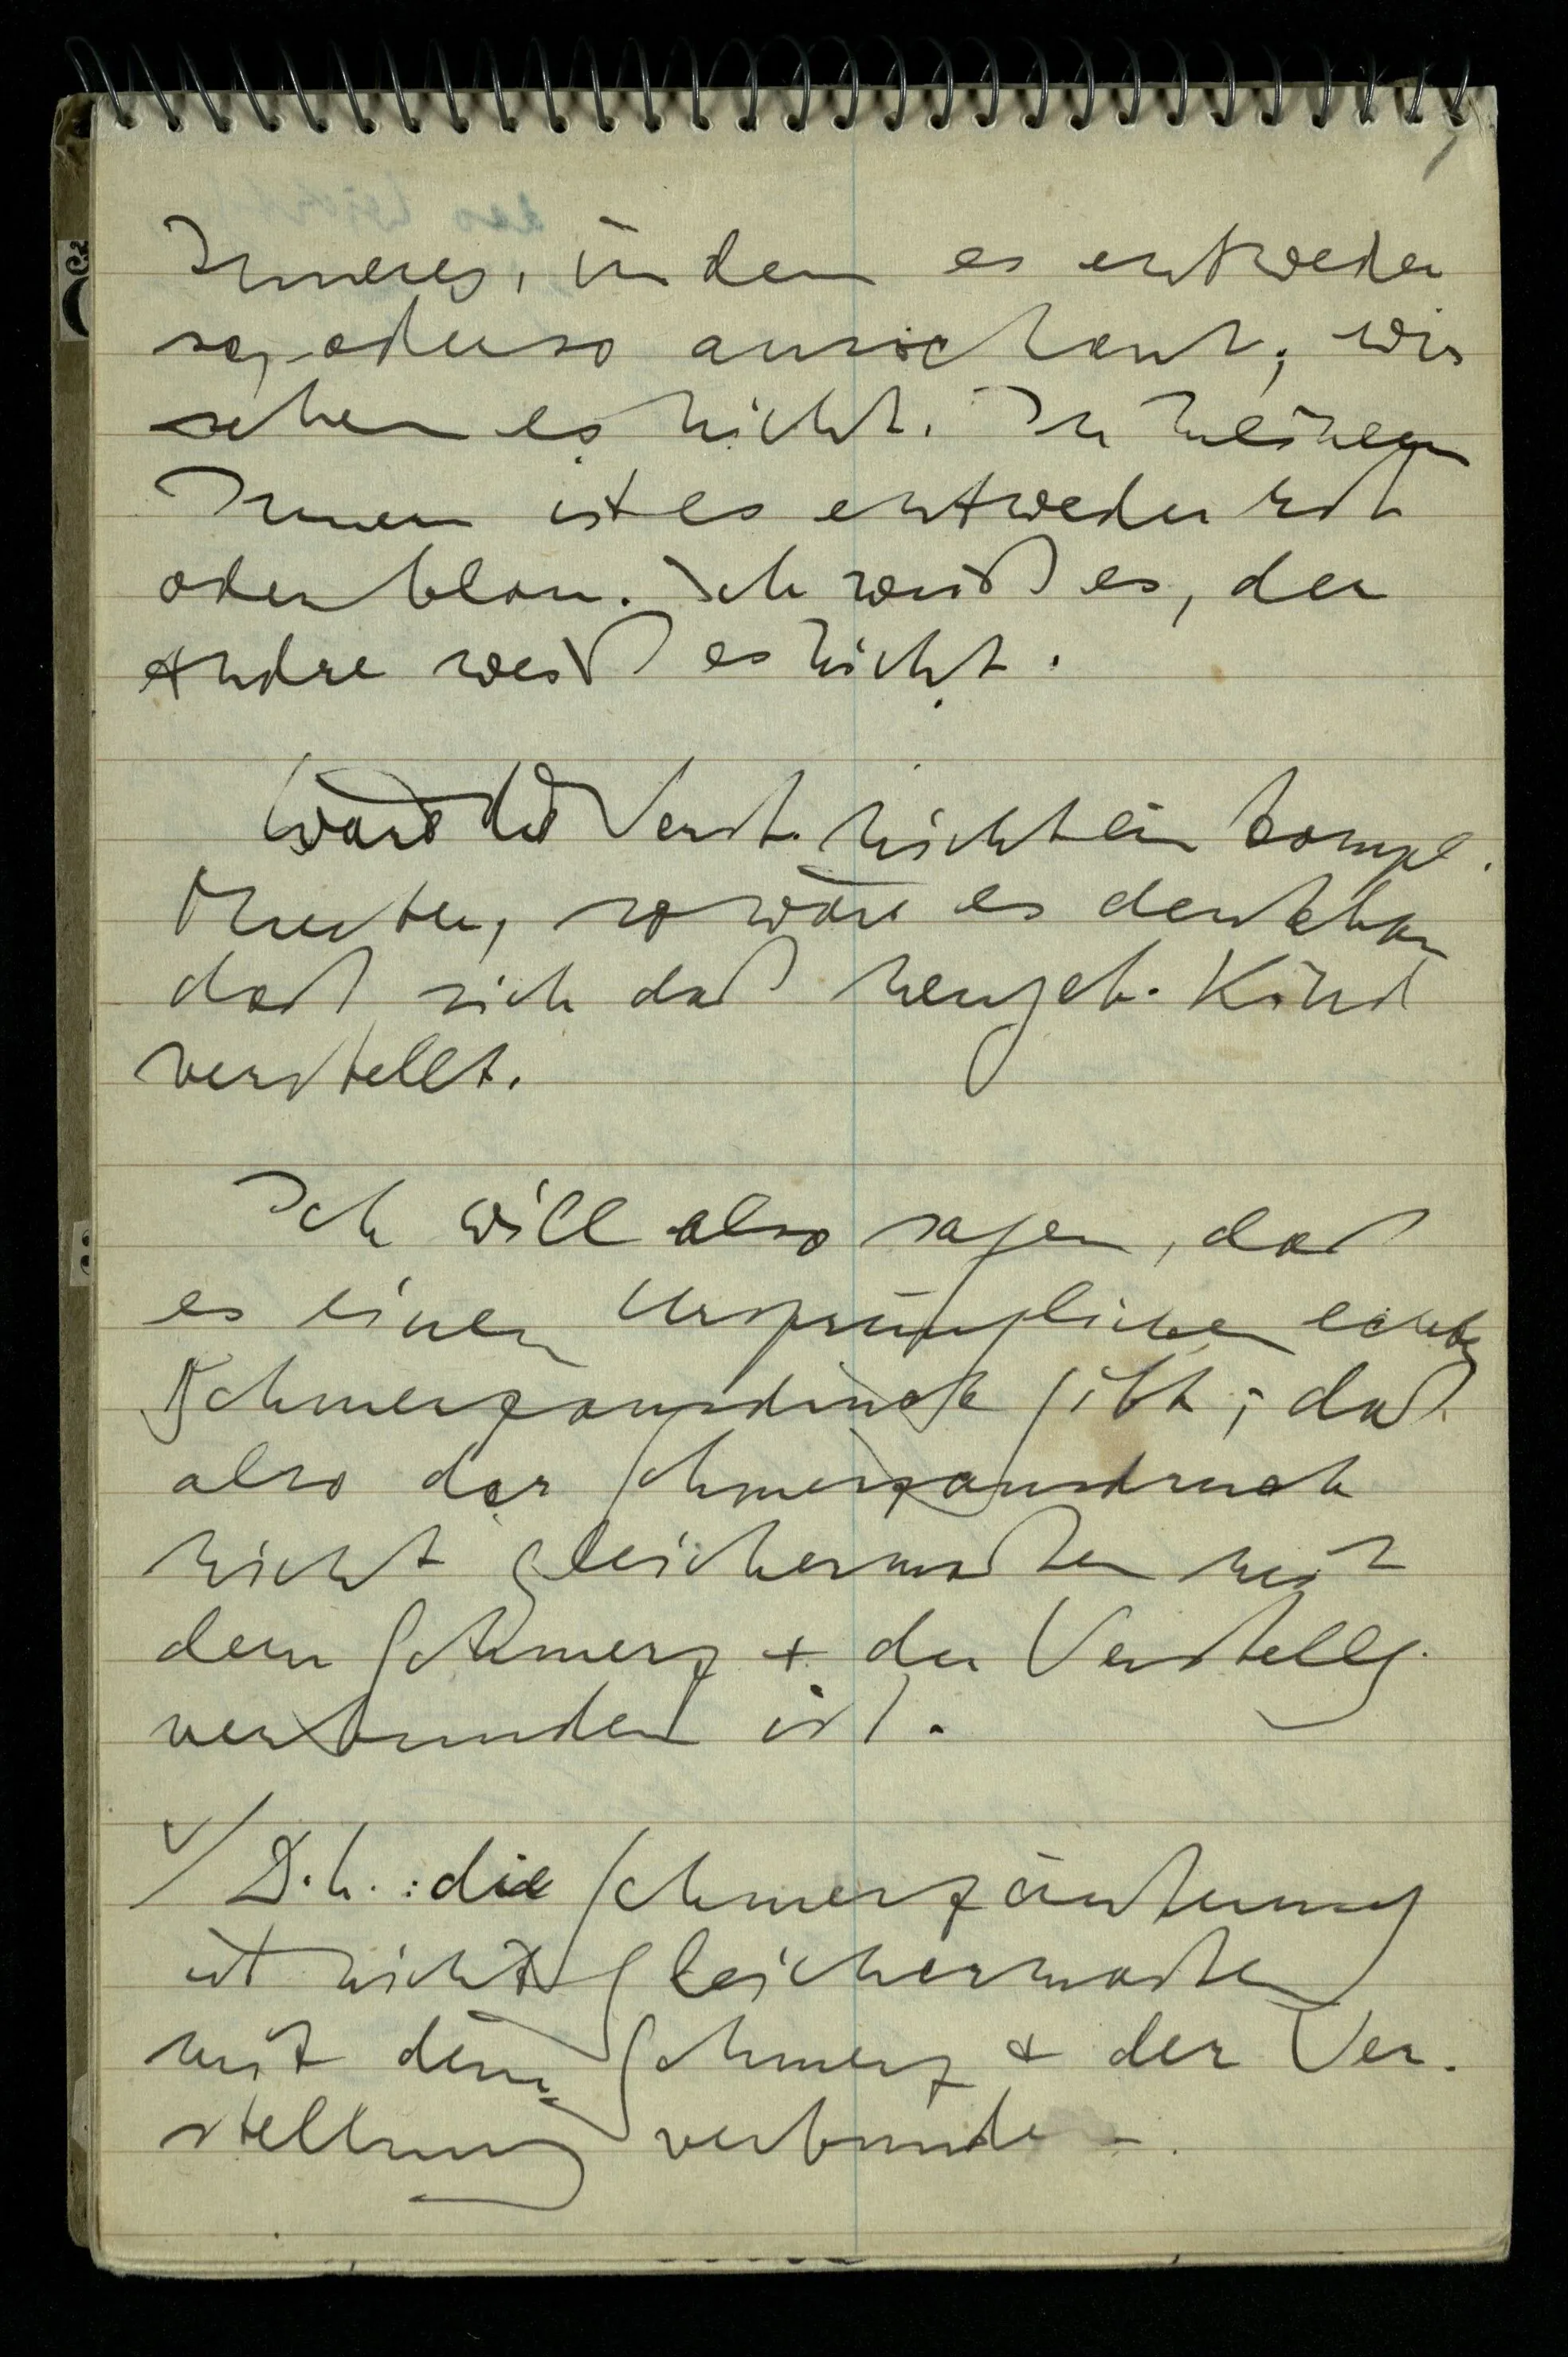 Inneres, in dem es entweder
so, oder so ausschaut; wir
sehen es nicht. In meinem
Innern ist es entweder rot
oder blau. Ich weiß es, der
Andre weiß es nicht.
Wäre die Verst. nicht ein kompl.
Muster, so wäre es denkbar
daß sich daß neugeb. Kind
verstellt.
Ich will also sagen, daß
es einen ursprünglichen echten
Schmerzausdruck gibt; daß
also der Schmerzausdruck
nicht gleichermaßen mit
dem Schmerz + der Verstellg.
verbunden ist.
√/ D.h.: die Schmerzäußerung
ist nicht gleichermaßen
mit dem Schmerz + der Ver-
stellung verbunden.